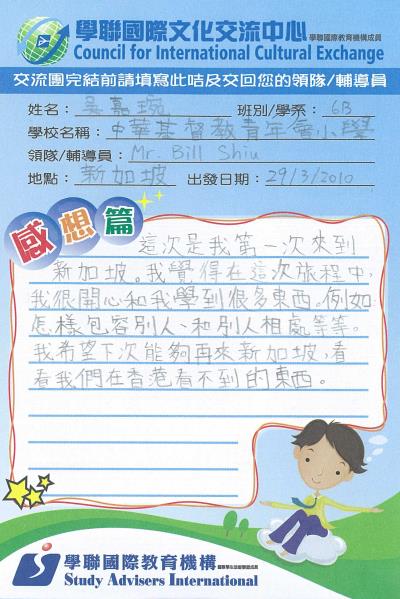 學聯國際文化交流中心 學聯國際教育機構成員
Council for International Cultural Exchange
交流團完結前請填寫此咭及交回您的領隊/輔導員
姓名：吳嘉琬 班別/學系：6B
學校名稱：中華基督教青年會小學
領隊/輔導員：Mr. Bill Shiu
地點：新加坡 出發日期：29/3/2010
感想篇
這次是我第一次來到
新加坡。我覺得在這次旅程中,
我很開心和我學到很多東西。例如
怎樣包容別人、和別人相處等等。
我希望下次能夠再來新加坡,看
看我們在香港看不到的東西。
學聯國際教育機構
Study Advisers International